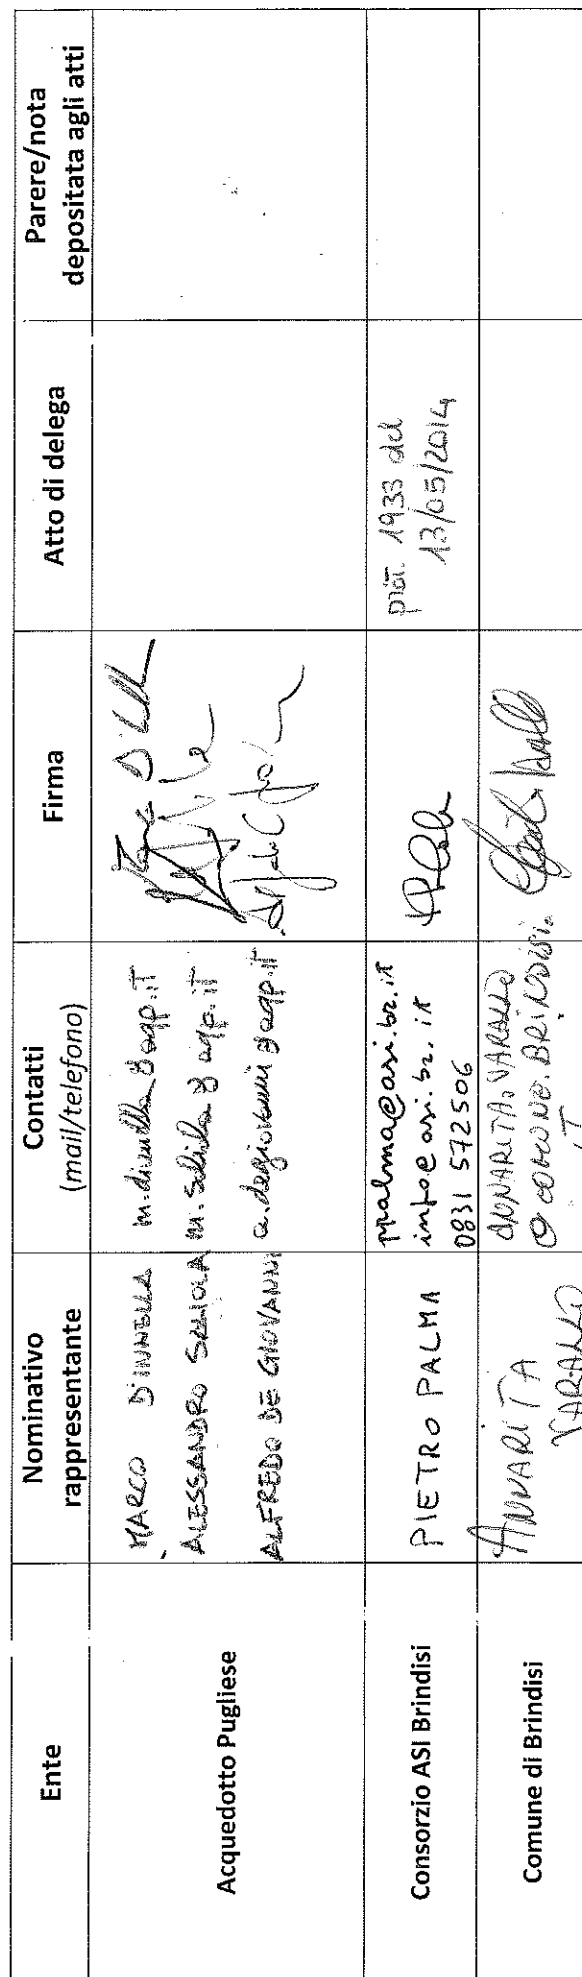 Ente
Nominativo
rappresentante
Contatti
(mail/telefono)
Firma
Atto di delega
Parere/nota
depositata agli atti
Acquedotto Pugliese
MARCO D'INNELLA
m.dinnella@aqp.it
ALESSANDRO
@aqp.it
ALFREDO DE GIOVANNI
a.degiovanni@aqp.it
Consorzio ASI Brindisi
PIETRO PALMA
ppalma@asi.br.it
info@asi.br.it
0831 572506
prot. 1933 del
13/05/2014
Comune di Brindisi
ANNARITA
VARALLO
ANNARITA.VARALLO
@COMUNE.BRINDISI.
IT